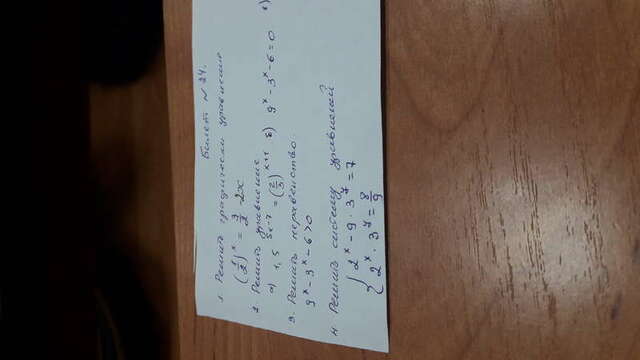 Билет № 24.
1. Решить графически уравнение
(1/2)^x = 3/2 - 2x
2. Решить уравнение
а) 1,5^(5x-7) = (2/3)^(x+1) б) 9^x - 3^x - 6 = 0 в)
3. Решить неравенство.
9^x - 3^x - 6 > 0
4. Решить систему уравнений
{ 2^x - 9 · 3^y = 7
2^x · 3^y = 8/9